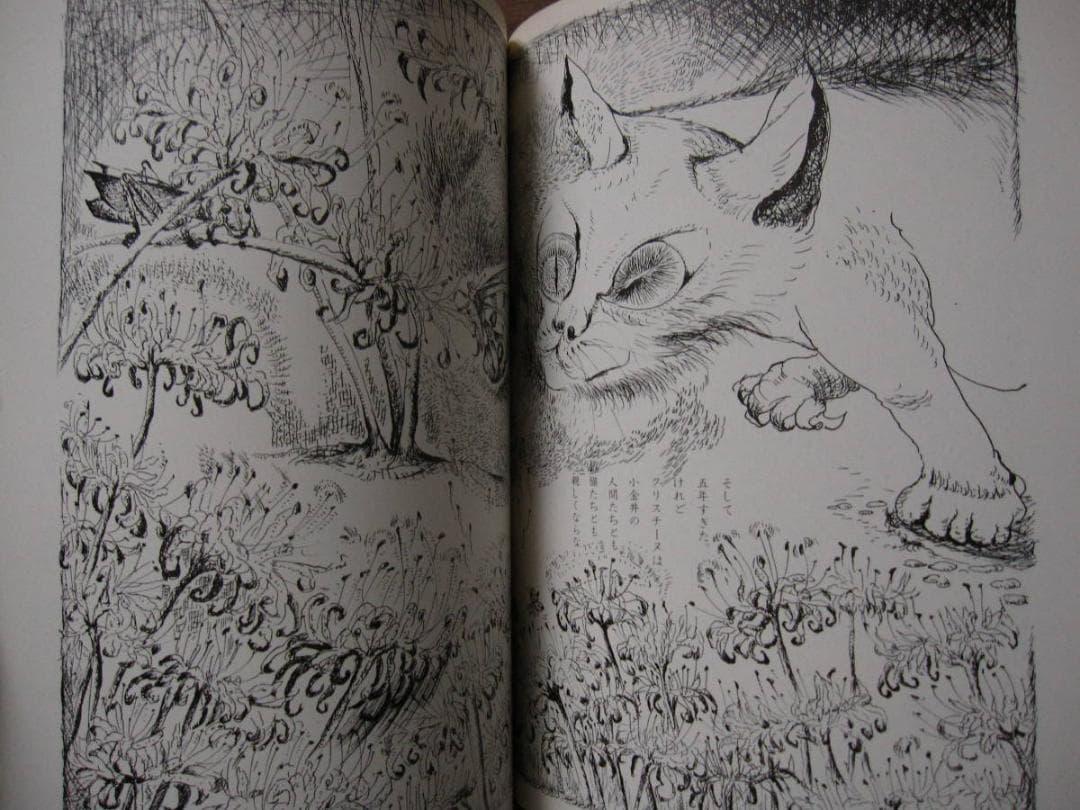 そして
五年すぎた。
けれど
クリスチーヌは
小金井の
人間たちとも
猫たちとも
親しくならな